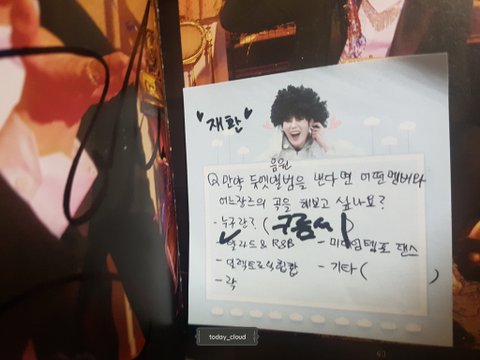 "재환"
음원
Q 만약 듀엣앨범을 낸다면 어떤멤버와
어느장르의 곡을 해보고 싶나요?
- 누구란? ( 구름씨 )
- 발라드 & R&B - 미디엄템포 댄스
- 일렉트로닉힙합 - 기타 ( )
- 락
today_cloud